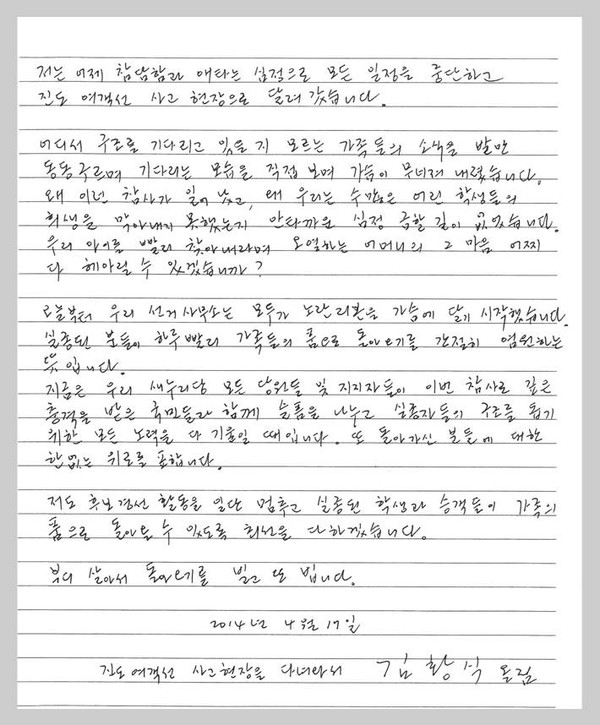 저는 어제 참담함과 애타는 심정으로 모든 일정을 중단하고
진도 여객선 사고 현장으로 달려 갔습니다.
어디서 구조를 기다리고 있을 지 모르는 가족들의 소식을 발만
동동구르며 기다리는 모습을 직접 보며 가슴이 무너져 내렸습니다.
왜 이런 참사가 일어 났고, 왜 우리는 수많은 어린 학생들의
희생을 막아내지 못했는지 안타까운 심정 금할 길이 없었습니다.
우리 아이를 빨리 찾아내라며 오열하는 어머니의 그 마음 어찌
다 헤아릴 수 있겠습니까?
오늘부터 우리 선거사무소는 모두가 노란리본을 가슴에 달기 시작했습니다.
실종된 분들이 하루빨리 가족들의 품으로 돌아오기를 간절히 염원하는
뜻입니다.
지금은 우리 새누리당 모든 당원들 및 지지자들이 이번 참사로 깊은
충격을 받은 국민들과 함께 슬픔을 나누고 실종자들의 구조를 돕기
위한 모든 노력을 다 기울일 때입니다. 또 돌아가신 분들에 대한
한없는 위로를 표합니다.
저도 후보경선 활동을 일단 멈추고 실종된 학생과 승객들이 가족의
품으로 돌아올 수 있도록 최선을 다하겠습니다.
부디 살아서 돌아오기를 빌고 또 빕니다.
2014년 4월 17일
진도여객선 사고현장을 다녀와서 김황식 올림